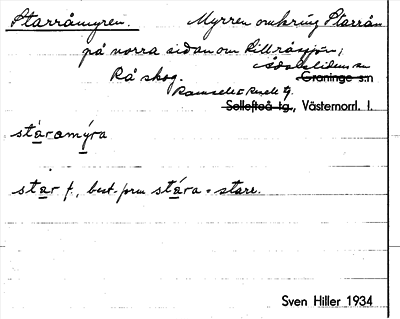 Starråmyren. Myrren omkring Starrån
på norra sidan om Lillråsjön;
Rå skog. Ådalslidens sn
Graninge s:n
Ramsele o Resele tg.
Sollefteå tg., Västernorrl. l.
stáramýra
star f., best. form stára = starr.
Sven Hiller 1934